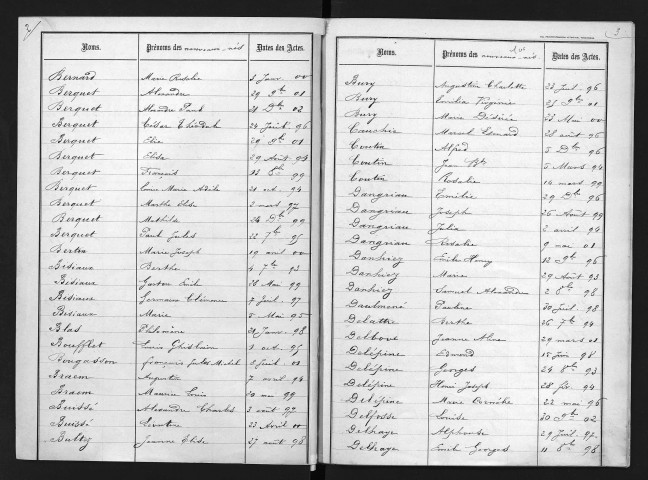 2
Noms. Prénoms des nouveaux-nés Dates des Actes.
Bernard Marie Rosalie 3 Janv. 00
Berquet Alexandre 29 9bre 01
Berquet Alexandre Paul 21 Dbre 02
Berquet César Théodule 24 Juil 96
Berquet Elise 29 8bre 01
Berquet Elisa 29 Août 94
Berquet François 99
Berquet Louis Marie 21 oct 94
Berquet Marthe Elise 2 mars 97
Berquet Mathilde 26 Dbre 99
Berquet Paul Jules 22 7bre 95
Berton Marie Joseph 19 avril 00
Bisiaux Berthe 4 7bre 93
Bisiaux Gaston Emile 28 Mai 99
Bisiaux Germaine Clémence 7 Juil. 97
Bisiaux Marie 5 Mai 95
Blas Philomène 21 Janv. 98
Boufflet Louis Ghislain 3 oct 95
François Jules Michel
Braem Augustin 7 avril 94
Braem Maurice Louis 99
Buissé Alexandre Charles 3 août 97
Buissé 23 Avril 00
Bultez Jeanne Elise 27 août 98
3
Noms. Prénoms des nouveaux-nés Dates des Actes.
Bury Augustine Charlotte 23 Juil. 96
Bury Emilia Virginie 01
Bury Marie Désirée 23 Mai 00
Cauchie Marcel Edouard 28 août 96
Coutin Alfred 5 Dbre 96
Coutin Jean Bte 5 Mars 94
Coutin Rosalie 14 mars 99
Dangriau Emilie 29 Dbre 96
Dangriau Joseph 26 Août 99
Dangriau Julia 2 avril 94
Dangriau Rosalie 9 mai 01
Danhiez Emile Henry 12 9bre 96
Danhiez Marie 29 Août 93
Danhiez Samuel Alexandre 2 8bre 98
Pauline 30 Juil. 98
Delattre Berthe 26 7bre 94
Delbove Jeanne 29 mars 01
Delépine Edmond 15 Juin 98
Delépine Georges 24 8bre 93
Delépine Henri Joseph 28 94
Delépine Marie 22 mai 96
Delfosse Louise 30 9bre 02
Delhaye Alphonse 29 Juil. 97
Delhaye Emile Georges 11 8bre 96